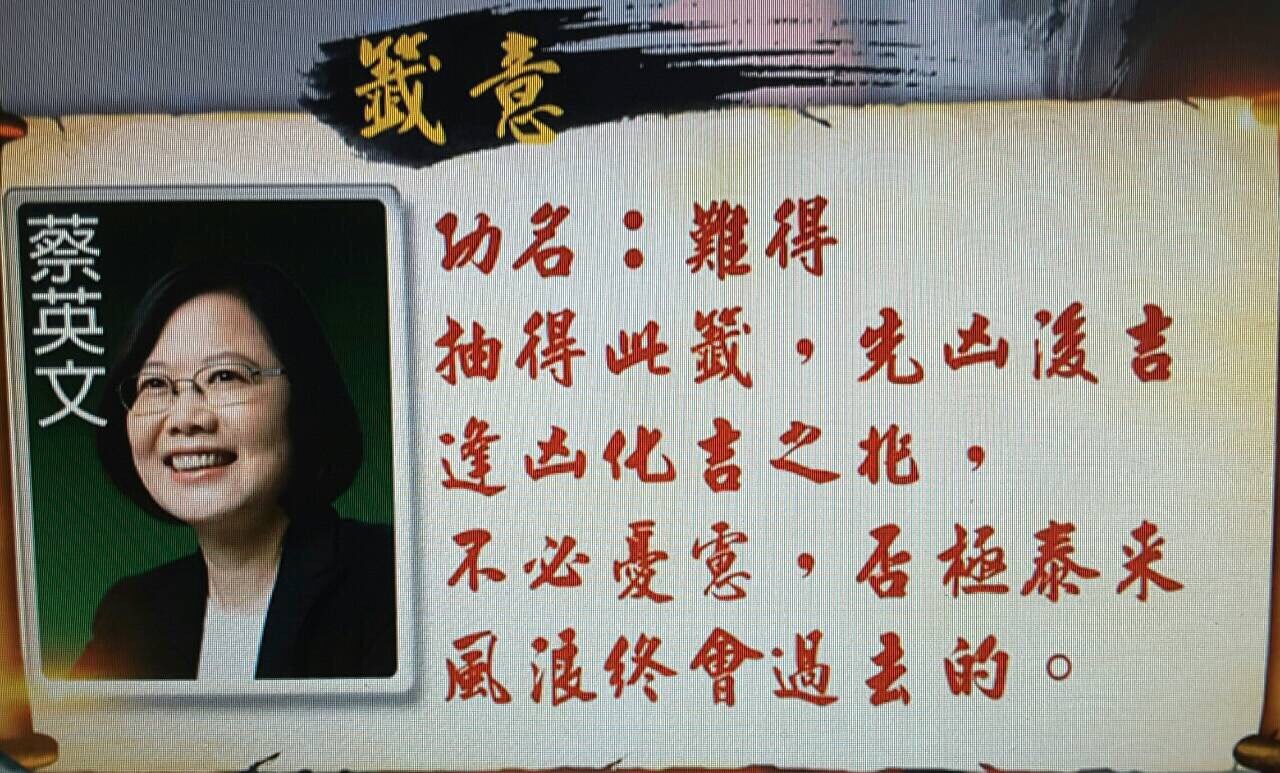 籤意
蔡英文
功名：難得
抽得此籤，先凶後吉
逢凶化吉之兆，
不必憂慮，否極泰来
風浪終會過去的。